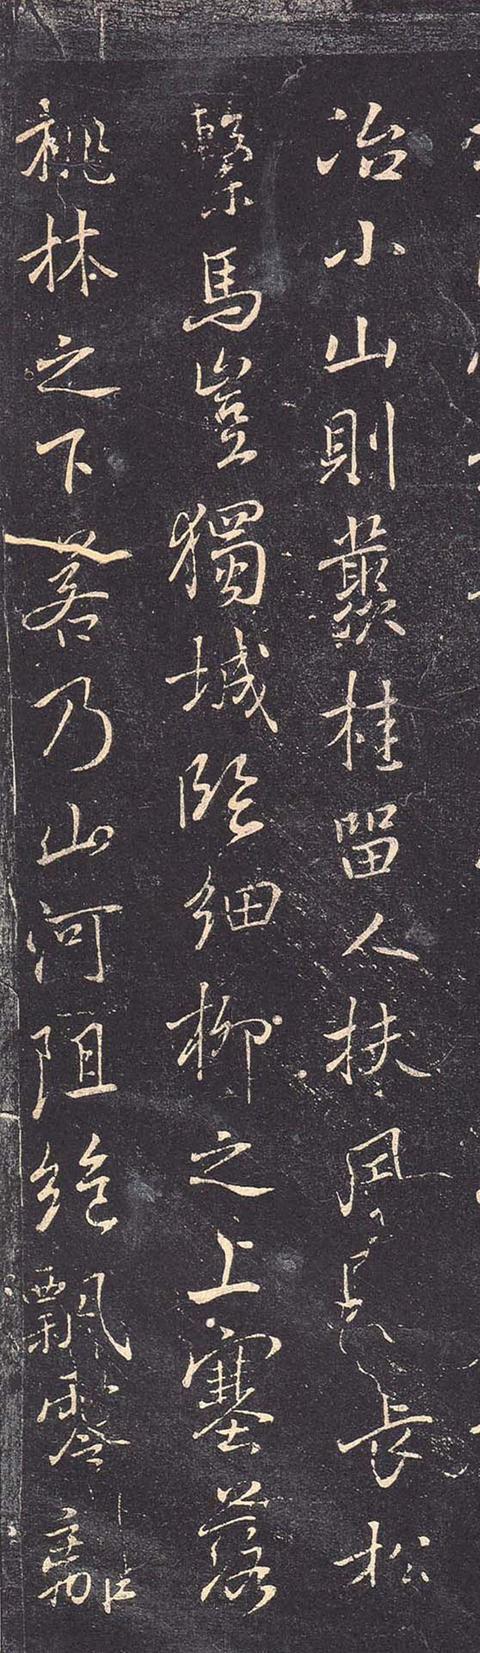 冶小山則叢桂留人扶風長松
繫馬豈獨城臨細柳之上塞落
桃林之下若乃山河阻絶飄零離